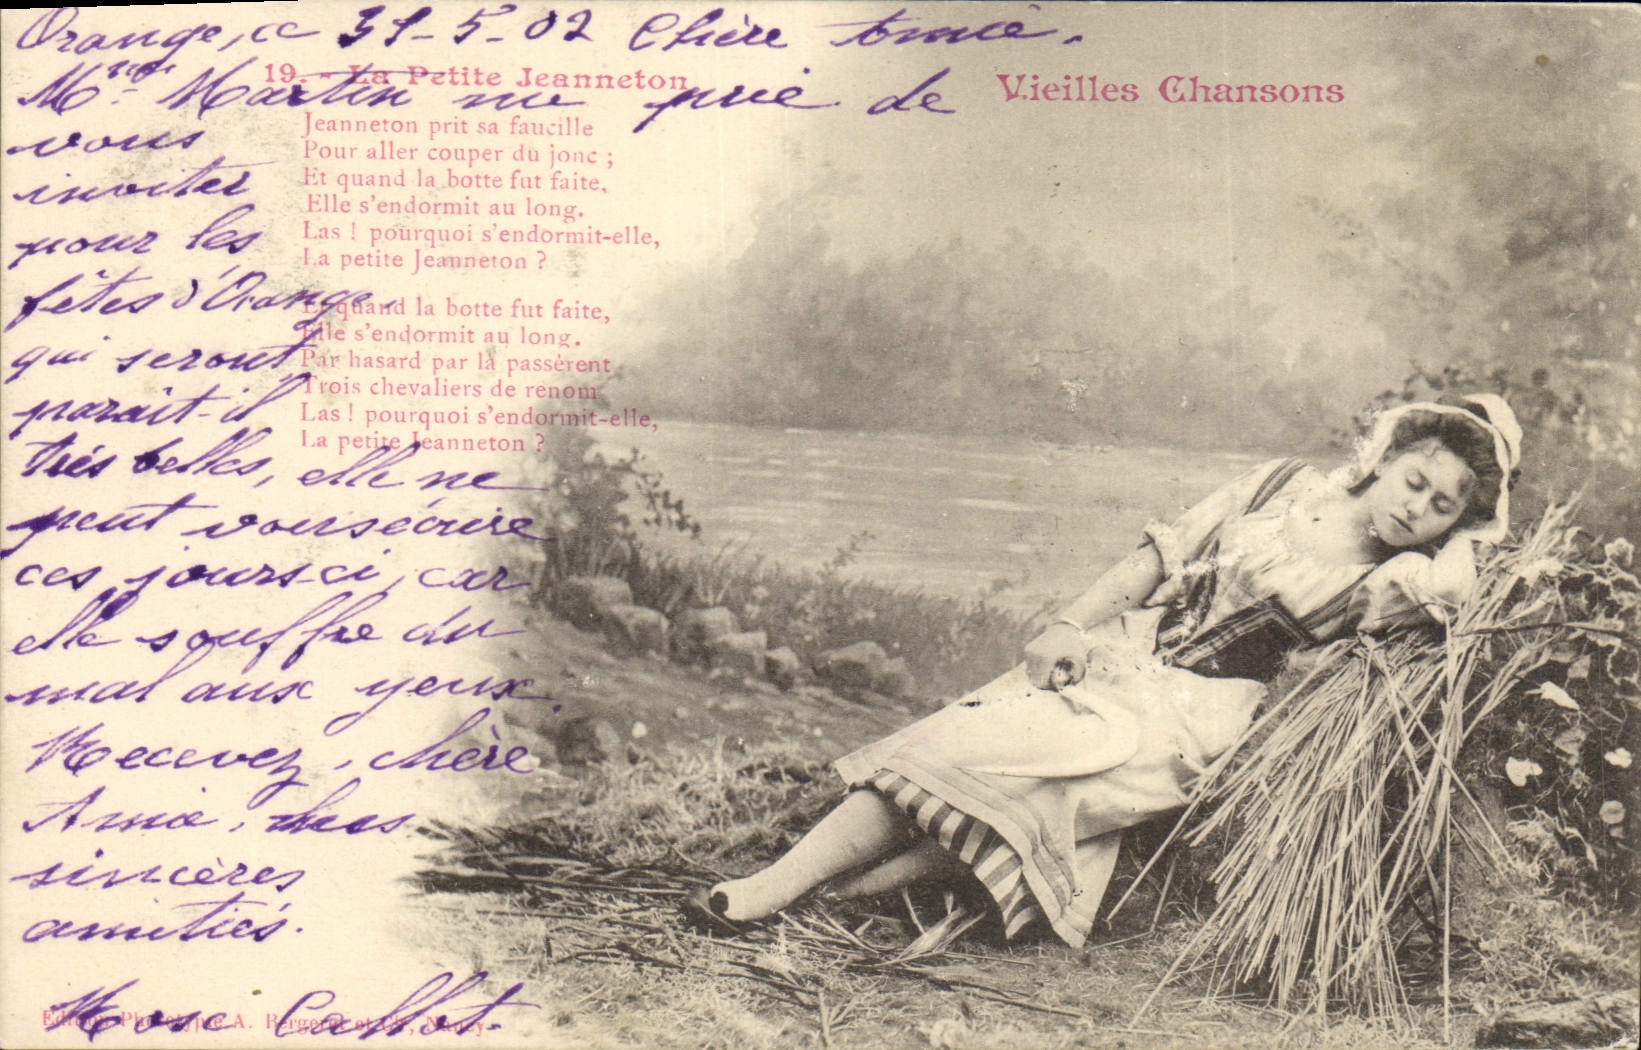 Orange, ce 31-5-02 Chère Amie.
Mme Martin me prie de
vous
inviter
pour les
fêtes d'Orange,
qui seront
paraît-il
très belles, elle ne
peut vous écrire
ces jours-ci, car
elle souffre du
mal aux yeux.
Recevez, chère
Amie, mes
sincères
amitiés.
19. - La Petite Jeanneton
Jeanneton prit sa faucille
Pour aller couper du jonc ;
Et quand la botte fut faite,
Elle s'endormit au long.
Las ! pourquoi s'endormit-elle,
La petite Jeanneton ?
Et quand la botte fut faite,
Elle s'endormit au long.
Par hasard par là passèrent
Trois chevaliers de renom
Las ! pourquoi s'endormit-elle,
La petite Jeanneton ?
Vieilles Chansons
Edition Phototypie A. Bergeret et Cie, Nancy